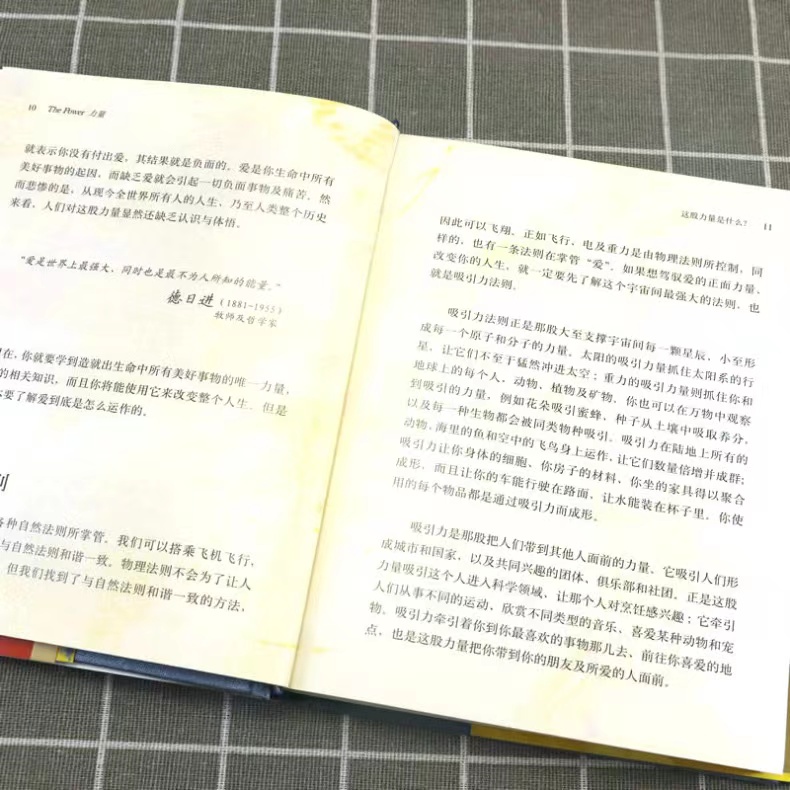 10 The Power 力量
就表示你没有付出爱，其结果就是负面的。爱是你生命中所有
美好事物的起因，而缺乏爱就会引起一切负面事物及痛苦。然
而悲惨的是，从现今全世界所有人的人生，乃至人类整个历史
来看，人们对这股力量显然还缺乏认识与体悟。
“爱是世界上最强大，同时也是最不为人所知的能量。”
德日进（1881-1955）
牧师及哲学家
在，你就要学到造就出生命中所有美好事物的唯一力量，
的相关知识，而且你将能使用它来改变整个人生。但是
要了解爱到底是怎么运作的。
则
各种自然法则所掌管。我们可以搭乘飞机飞行，
与自然法则和谐一致。物理法则不会为了让人
但我们找到了与自然法则和谐一致的方法，
这股力量是什么？ 11
因此可以飞翔。正如飞行，电及重力是由物理法则所控制，同
样的，也有一条法则在掌管“爱”。如果想驾驭爱的正面力量，
改变你的人生，就一定要先了解这个宇宙间最强大的法则，也
就是吸引力法则。
吸引力法则正是那股大至支撑宇宙间每一颗星辰，小至形
成每一个原子和分子的力量。太阳的吸引力量抓住太阳系的行
星，让它们不至于猛然冲进太空；重力的吸引力量则抓住你和
地球上的每个人、动物、植物及矿物。你也可以在万物中观察
到吸引的力量，例如花朵吸引蜜蜂，种子从土壤中吸取养分，
以及每一种生物都会被同类物种吸引。吸引力在陆地上所有的
动物，海里的鱼和空中的飞鸟身上运作，让它们数量倍增并成群；
吸引力让你身体的细胞、你房子的材料、你坐的家具得以聚合
成形，而且让你的车能行驶在路面，让水能装在杯子里。你使
用的每个物品都是通过吸引力而成形。
吸引力是那股把人们带到其他人面前的力量。它吸引人们形
成城市和国家，以及共同兴趣的团体、俱乐部和社团。正是这股
力量吸引这个人进入科学领域，让那个人对烹饪感兴趣；它牵引
人们从事不同的运动，欣赏不同类型的音乐、喜爱某种动物和宠
物。吸引力牵引着你到你最喜欢的事物那儿去、前往你喜爱的地
点，也是这股力量把你带到你的朋友及所爱的人面前。